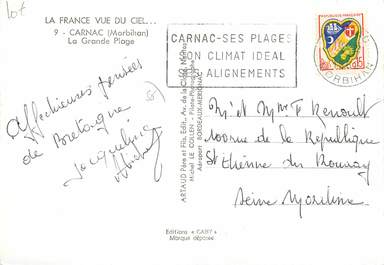 lot
LA FRANCE VUE DU CIEL...
9 - CARNAC (Morbihan)
La Grande Plage
CARNAC-SES PLAGES
SON CLIMAT IDEAL
ALIGNEMENTS
REPUBLIQUE FRANÇAISE
MORBIHAN
Affectueuses pensées
de Bretagne
Jacqueline
Michel
ARTAUD Père et Fils, Edit., Av. de la Close, Nantes
Michel LE COLLEN - Pilote-Photographe
Aéroport BORDEAUX-MERIGNAC
Mr et Mme F Renoult
Avenue de la Republique
St Etienne du Rouvray
Seine Maritime
Editions « GABY »
Marque déposée